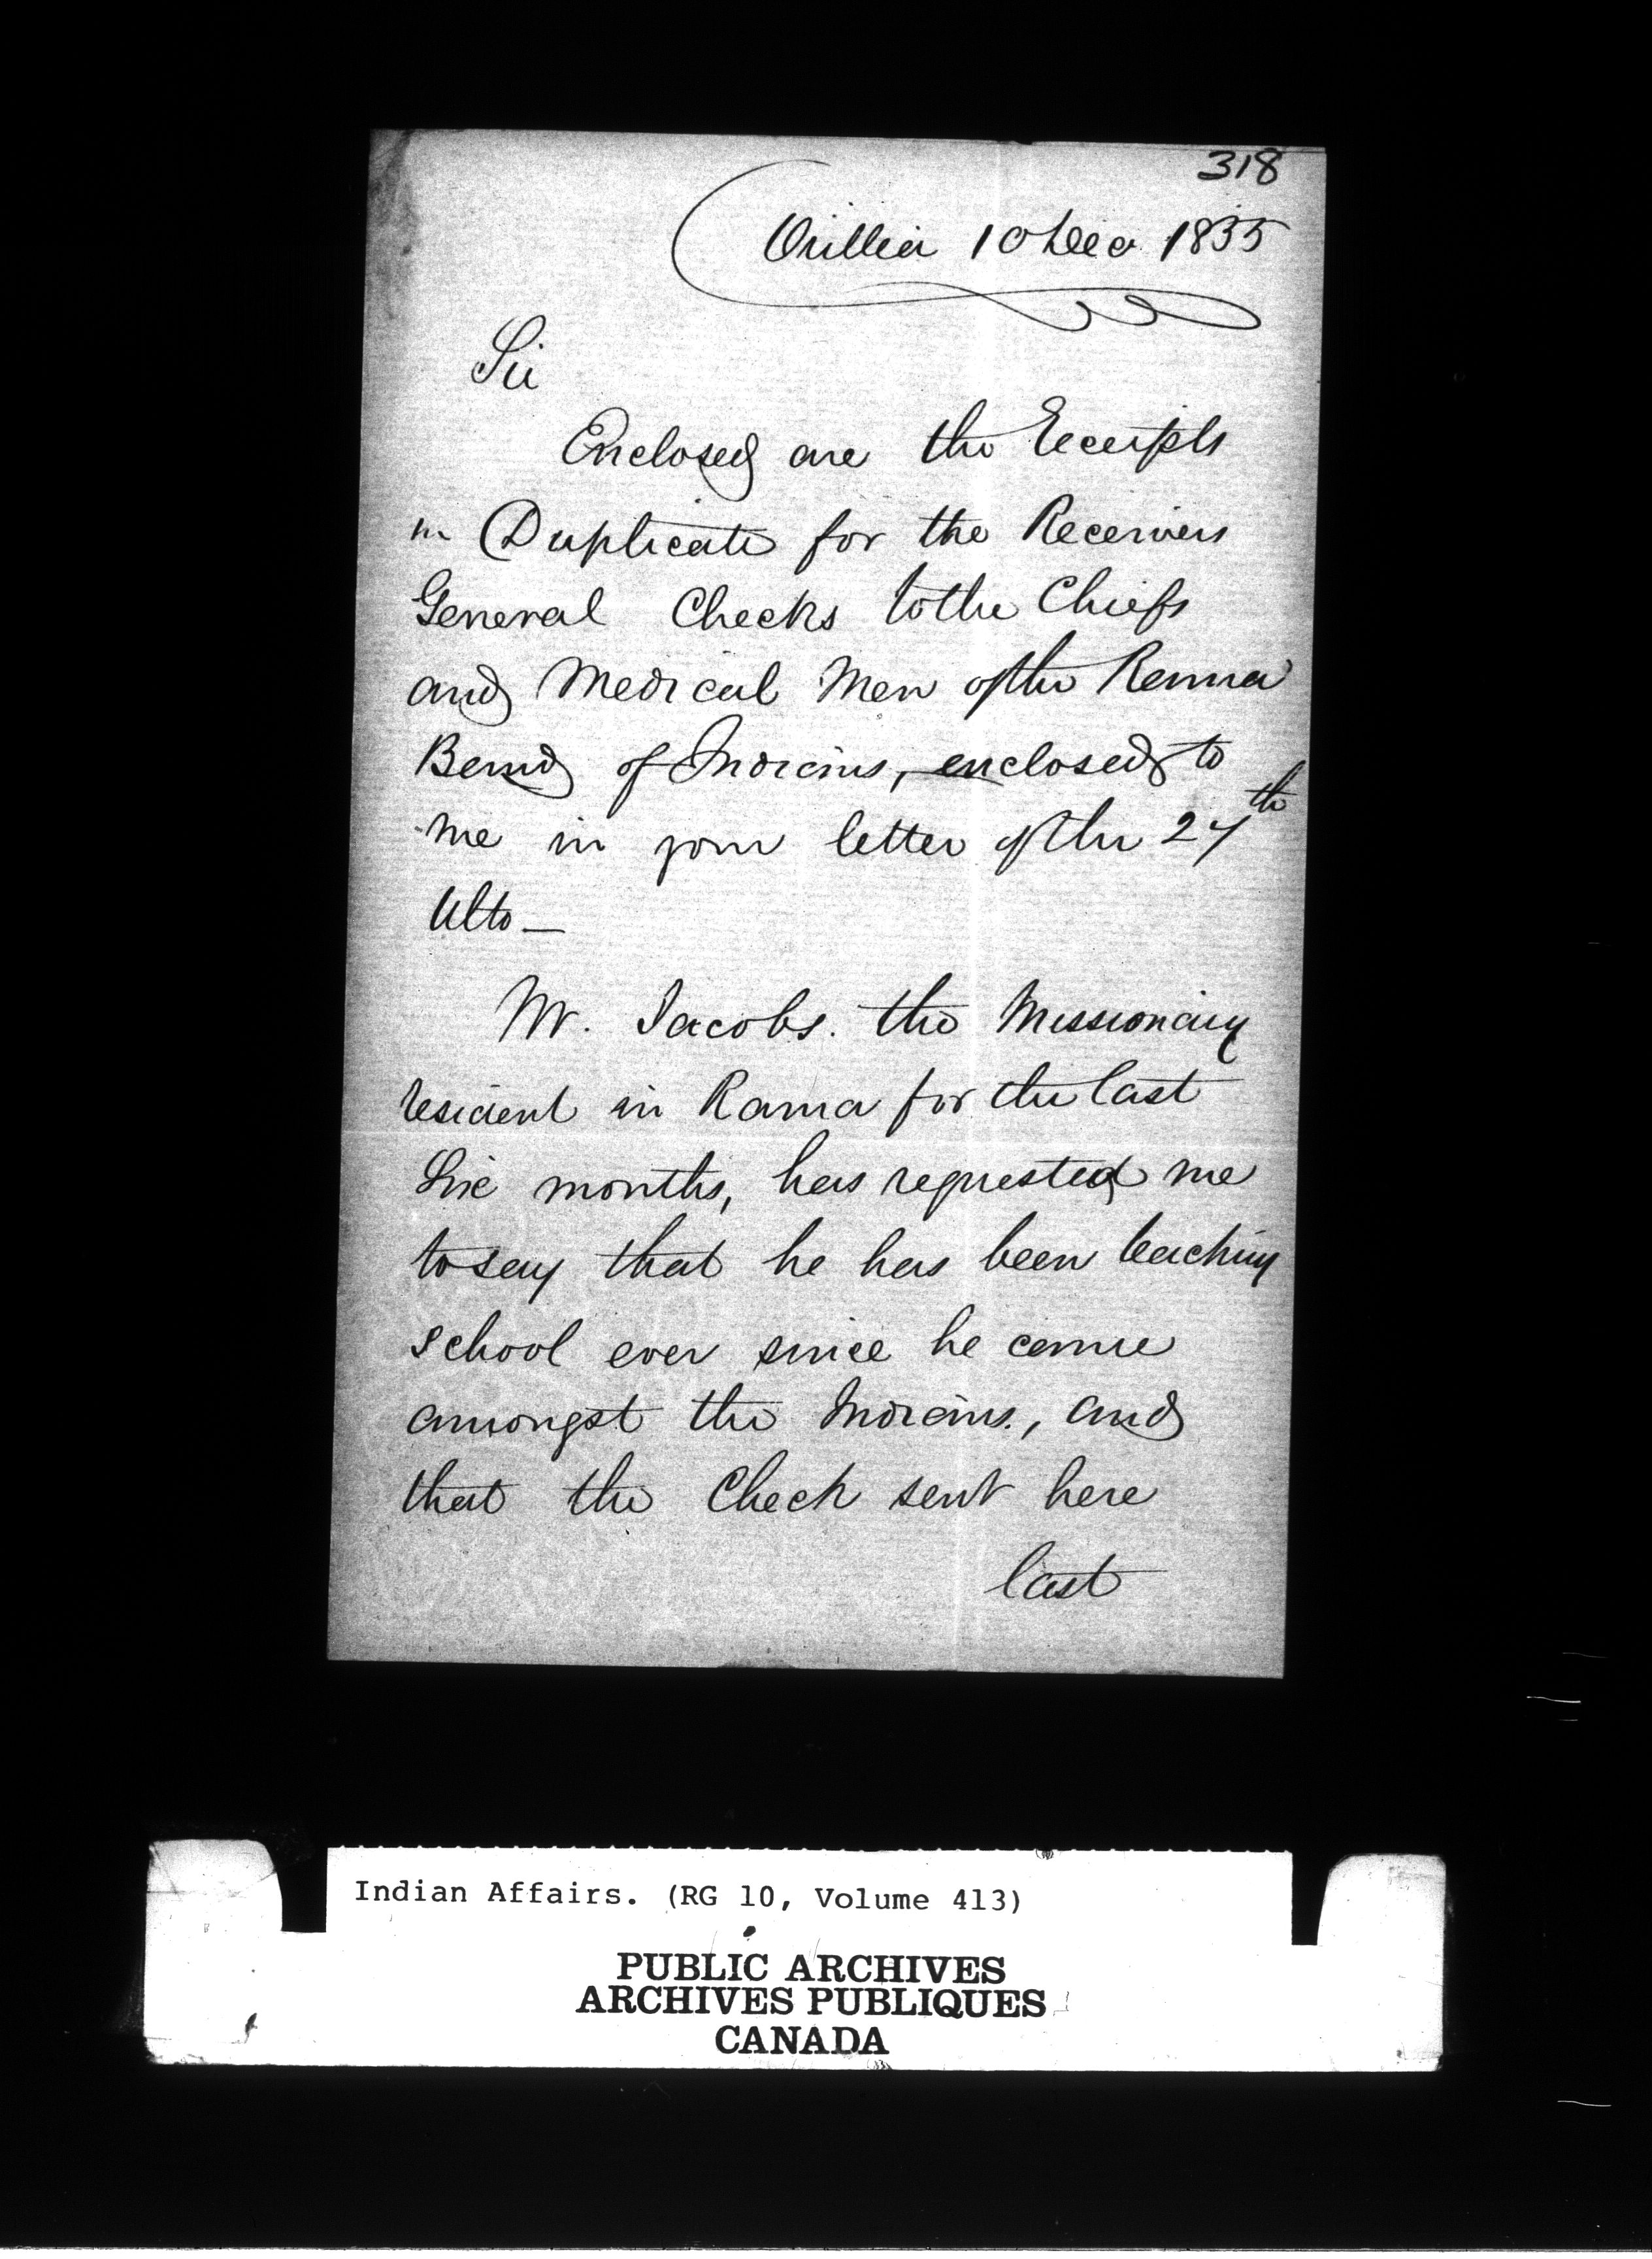 318
Orillia 10 Dec 1835
Sir
Enclosed are the Receipts
in Duplicate for the Receivers
General Checks to the Chiefs
and Medical Men of the Rama
Band of Indians, enclosed to
me in your letter of the 27th
Ulto —
Mr. Jacobs. the Missionary
resident in Rama for the last
Six months, has requested me
to say that he has been teaching
school ever since he came
amongst the Indians, and
that the Check sent here
last
Indian Affairs. (RG 10, Volume 413)
PUBLIC ARCHIVES
ARCHIVES PUBLIQUES
CANADA